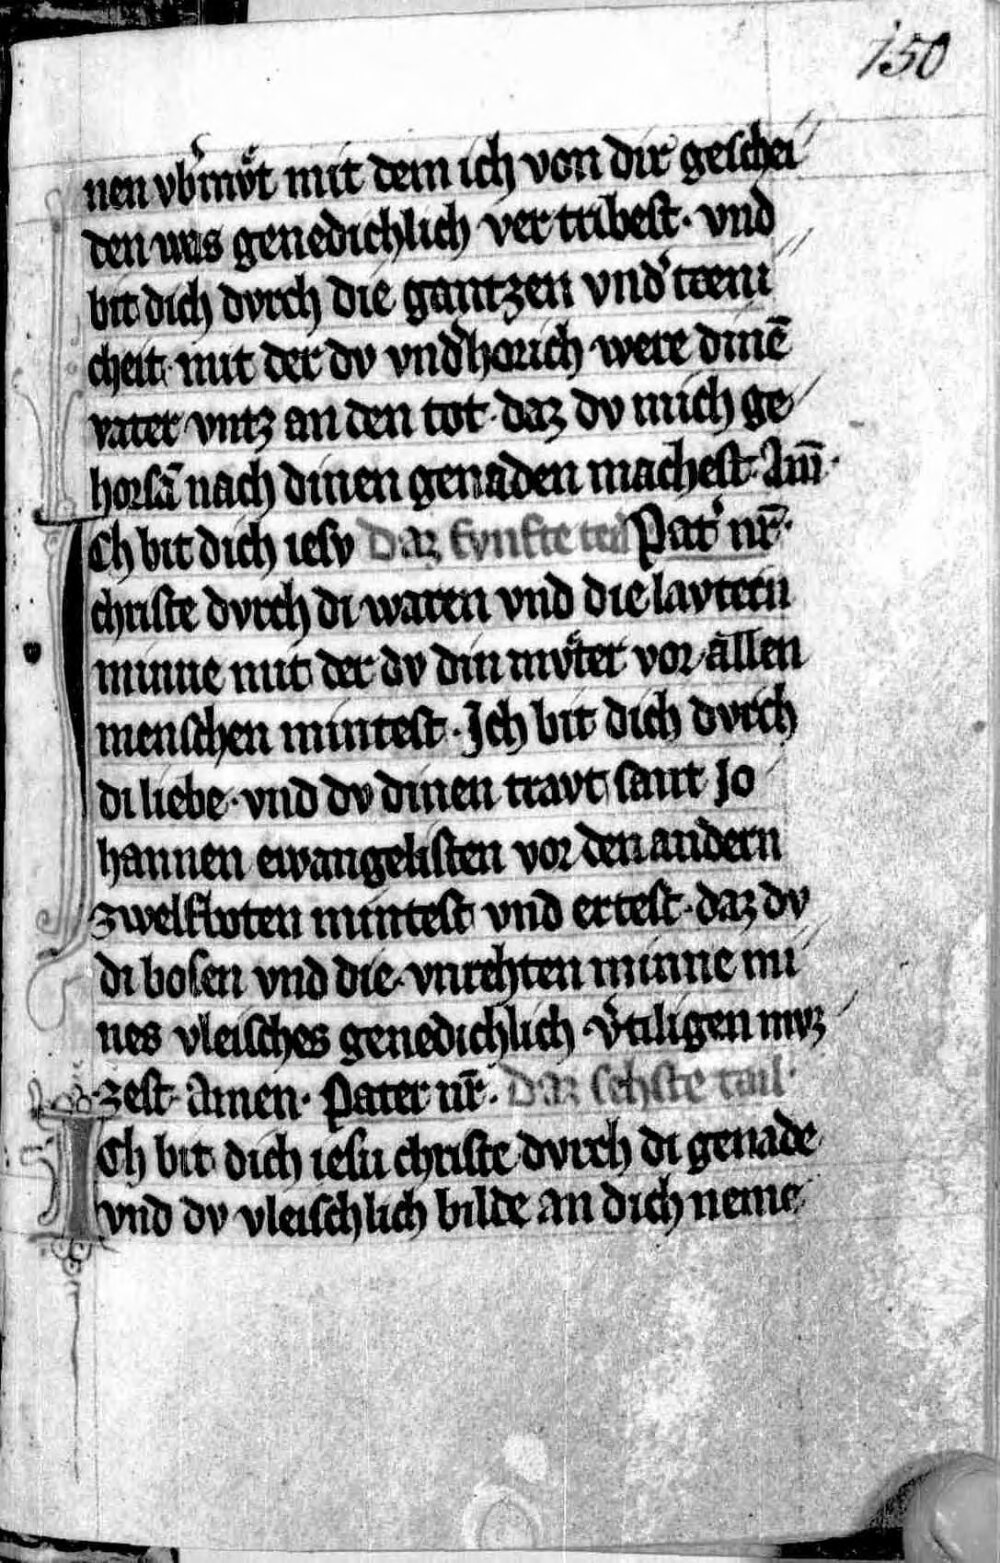 150
nen vb̕mvͦt mit dem ich von dir geschei
den was genedichlich ver tribest · vnd
bit dich dvrch die gantzen vnd̕ tæni
cheit · mit der dv vnd̕horich were dinē
vater vntz an den tot · daz dv mich ge
horsā nach dinen genaden machest · Am̄ ·
Ich bit dich iesv Daz fvnfte teil Pat̕ nr̄ ·
christe dvrch di waren vnd die lavtern
minne mit der dv din mvͦter vor allen
menschen mintest · Ich bit dich dvrch
di liebe · vnd dv dinen travt sant Jo
hannen ewangelisten vor den andern
zwelfboten mintest vnd ertest · daz dv
di bosen vnd die · vnrehten minne mi
nes vleisches genedichlich v̕tiligen mvz
zest · Amen · Pater nr̄ · Daz sehste tail ·
Ich bit dich iesu christe dvrch di genade
vnd dv vleischlich bilde an dich neme